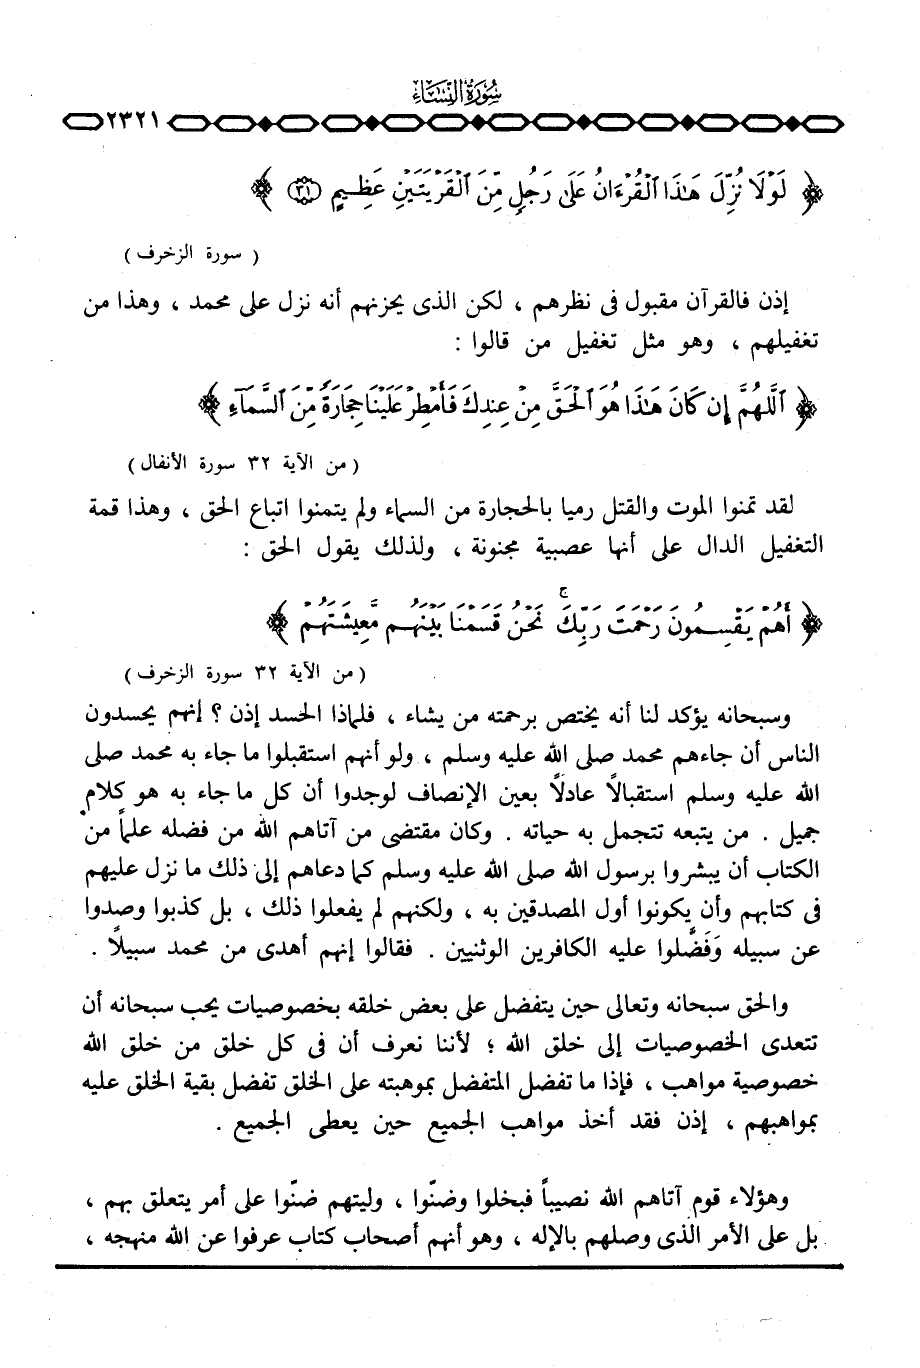 سُورَةُ النِّسَاءِ
٢٣٢١
﴿ لَوْلَا نُزِّلَ هَـٰذَا ٱلْقُرْءَانُ عَلَىٰ رَجُلٍ مِّنَ ٱلْقَرْيَتَيْنِ عَظِيمٍ (٣١) ﴾
( سورة الزخرف )
إذن فالقرآن مقبول فى نظرهم ، لكن الذى يحزنهم أنه نزل على محمد ، وهذا من
تغفيلهم ، وهو مثل تغفيل من قالوا :
﴿ ٱللَّهُمَّ إِن كَانَ هَـٰذَا هُوَ ٱلْحَقَّ مِنْ عِندِكَ فَأَمْطِرْ عَلَيْنَا حِجَارَةً مِّنَ ٱلسَّمَآءِ ﴾
( من الآية ٣٢ سورة الأنفال )
لقد تمنوا الموت والقتل رميا بالحجارة من السماء ولم يتمنوا اتباع الحق ، وهذا قمة
التغفيل الدال على أنها عصبية مجنونة ، ولذلك يقول الحق :
﴿ أَهُمْ يَقْسِمُونَ رَحْمَتَ رَبِّكَ ۚ نَحْنُ قَسَمْنَا بَيْنَهُم مَّعِيشَتَهُمْ ﴾
( من الآية ٣٢ سورة الزخرف )
وسبحانه يؤكد لنا أنه يختص برحمته من يشاء ، فلماذا الحسد إذن ؟ إنهم يحسدون
الناس أن جاءهم محمد صلى الله عليه وسلم ، ولو أنهم استقبلوا ما جاء به محمد صلى
الله عليه وسلم استقبالاً عادلاً بعين الإنصاف لوجدوا أن كل ما جاء به هو كلام
جميل . من يتبعه تتجمل به حياته . وكان مقتضى من آتاهم الله من فضله علماً من
الكتاب أن يبشروا برسول الله صلى الله عليه وسلم كما دعاهم إلى ذلك ما نزل عليهم
فى كتابهم وأن يكونوا أول المصدقين به ، ولكنهم لم يفعلوا ذلك ، بل كذبوا وصدوا
عن سبيله وَفَضَّلوا عليه الكافرين الوثنيين . فقالوا إنهم أهدى من محمد سبيلاً .
والحق سبحانه وتعالى حين يتفضل على بعض خلقه بخصوصيات يحب سبحانه أن
تتعدى الخصوصيات إلى خلق الله ؛ لأننا نعرف أن فى كل خلق من خلق الله
خصوصية مواهب ، فإذا ما تفضل المتفضل بموهبته على الخلق تفضل بقية الخلق عليه
بمواهبهم ، إذن فقد أخذ مواهب الجميع حين يعطى الجميع .
وهؤلاء قوم آتاهم الله نصيباً فبخلوا وضنّوا ، وليتهم ضنّوا على أمر يتعلق بهم ،
بل على الأمر الذى وصلهم بالإله ، وهو أنهم أصحاب كتاب عرفوا عن الله منهجه ،